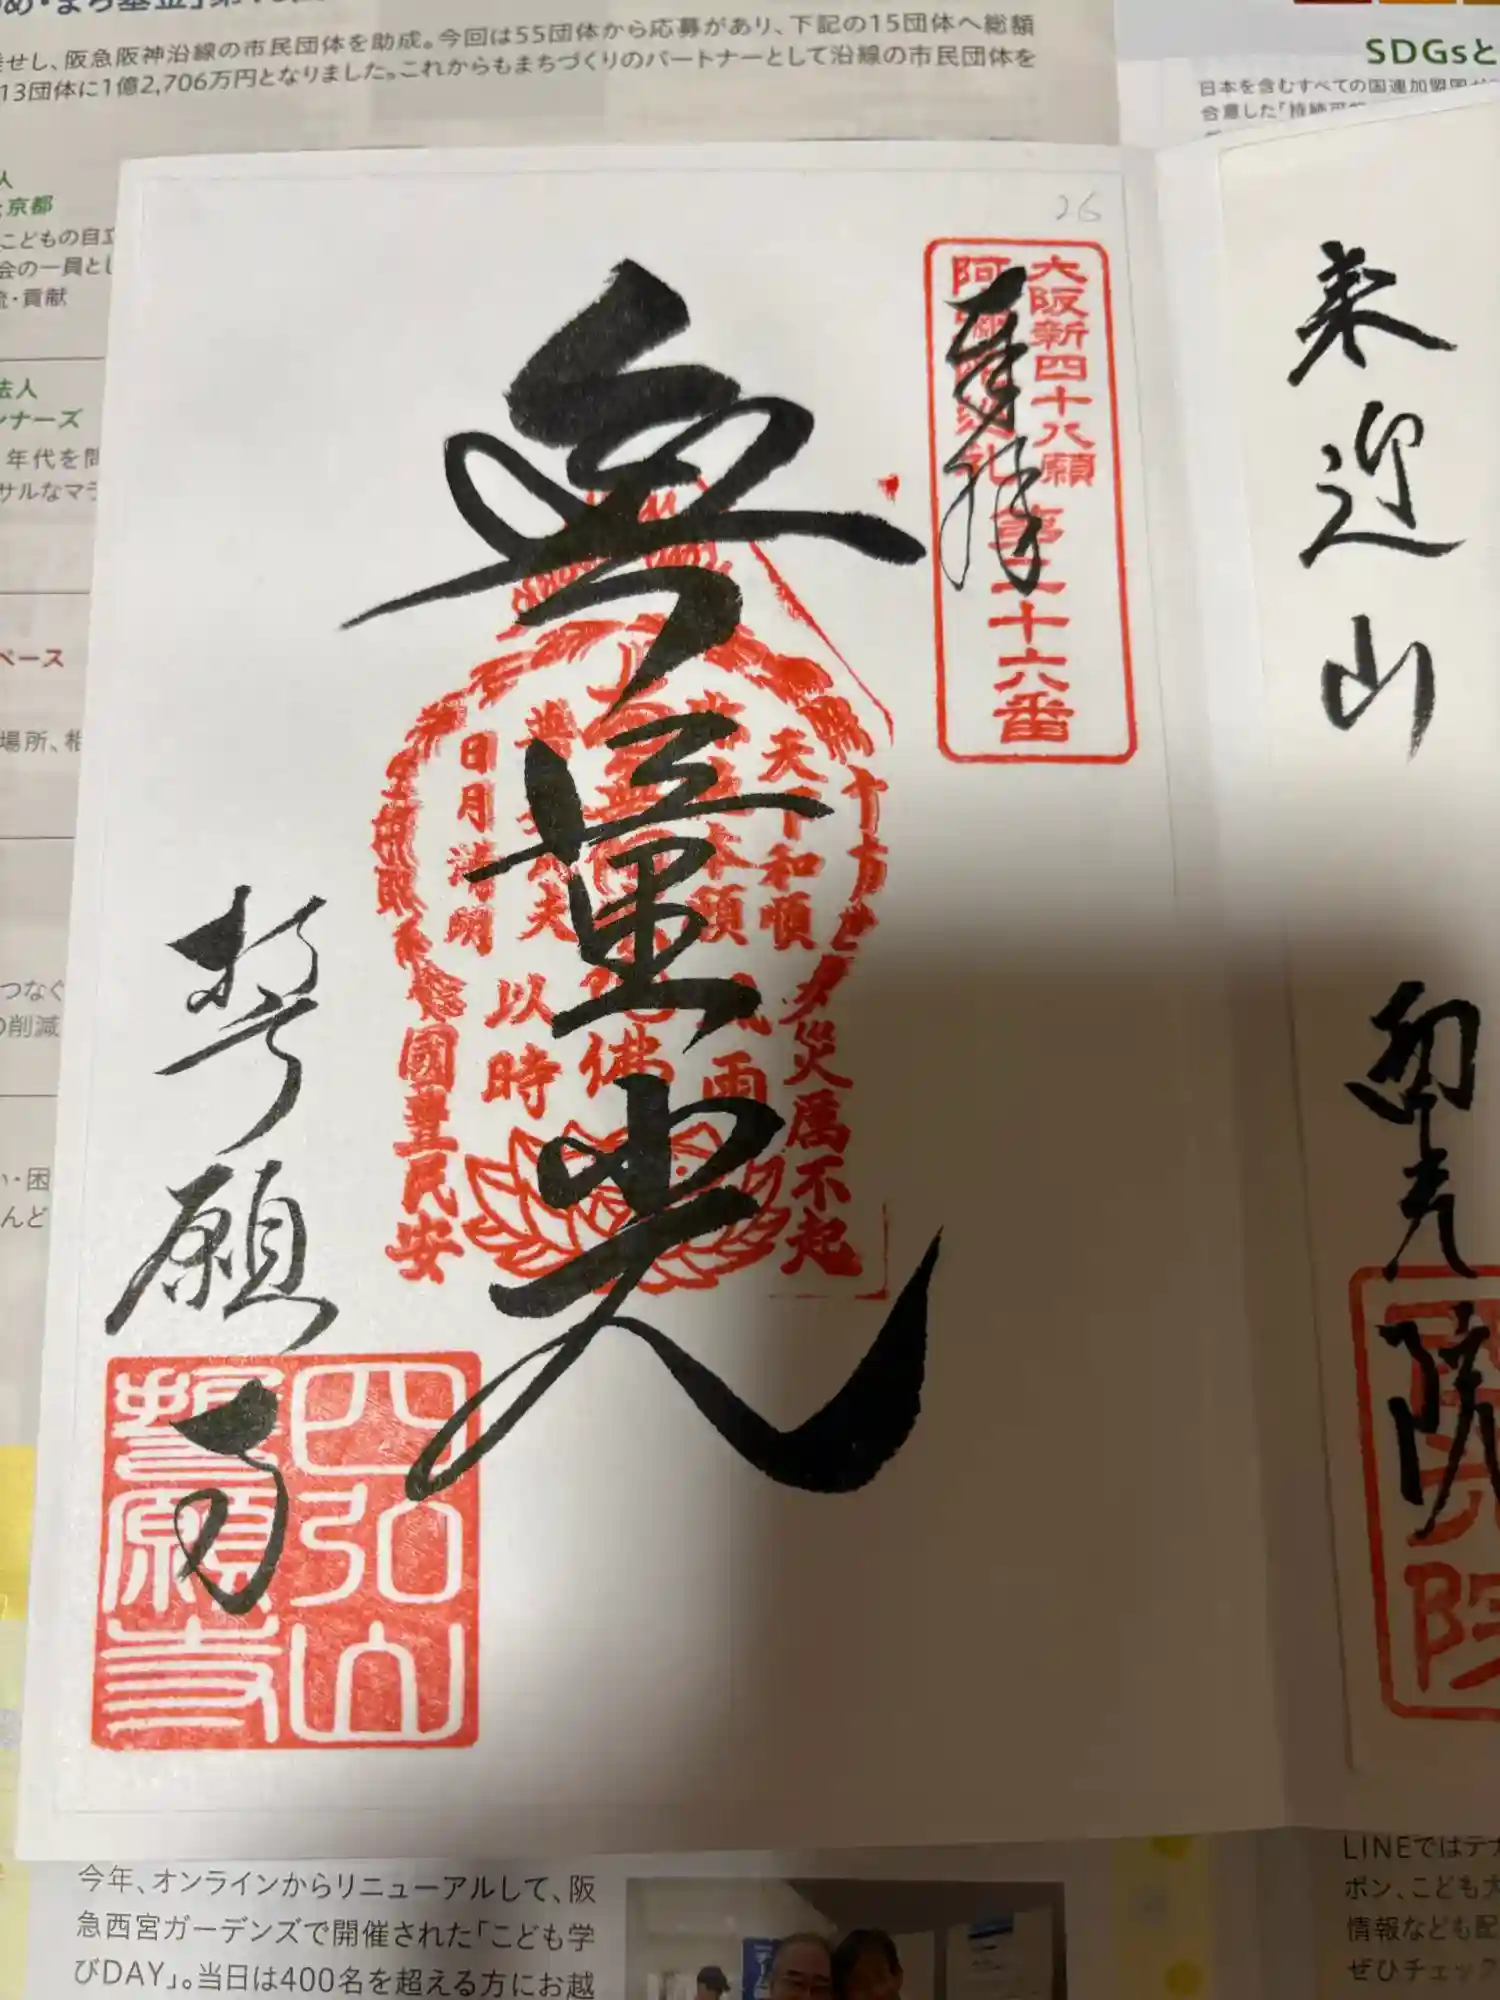 め・まち基金」第
せし、阪急阪神沿線の市民団体を助成。今回は55団体から応募があり、下記の15団体へ総額
13団体に1億2,706万円となりました。これからもまちづくりのパートナーとして沿線の市民団体を
SDGsと
日本を含むすべての国連加盟国が
合意した「持続可能
人
京都
こどもの自立
会の一員とし
流・貢献
法人
ンナーズ
年代を問
サルなマラ
ペース
場所、相
つなぐ
の削減
い・困
んど
26
大阪新四十八願
阿彌陀巡礼
第二十六番
奉拝
無量光
十方世
災厲不起
天下和順
日月清明
風雨
以時
國豊民安
誓願寺
四弘山
誓願寺
来迎山
西光院
今年、オンラインからリニューアルして、阪
急西宮ガーデンズで開催された「こども学
びDAY」。当日は400名を超える方にお越
LINEではテナ
ポン、こども大
情報なども配
ぜひチェック